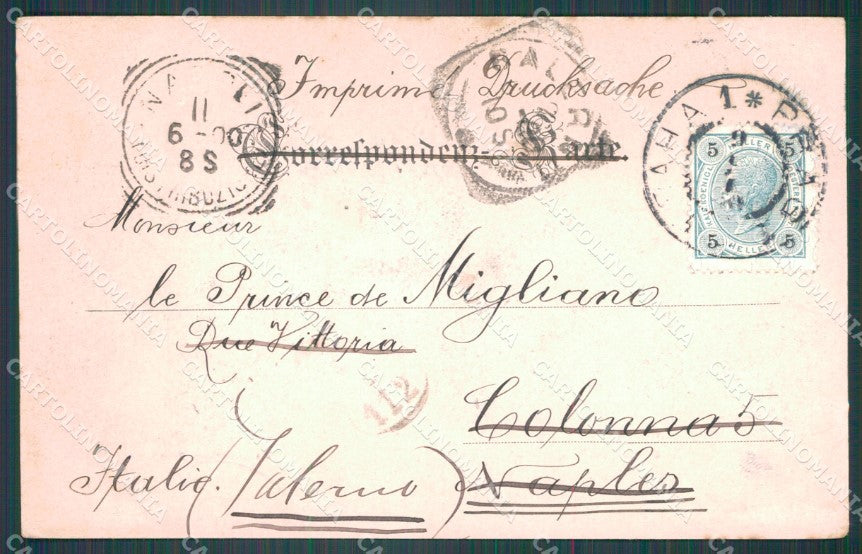 Imprimé Drucksache
Correspondenz-Karte.
NAPOLI
11
6-00
8S
PRAHA 1 * PRAG
5 HELLER 5
5 HELLER 5
Monsieur
le Prince de Migliano
Due Vittoria
112
Colonna 5
Italie. (Salerno) Naples
CARTOLINOMANIA